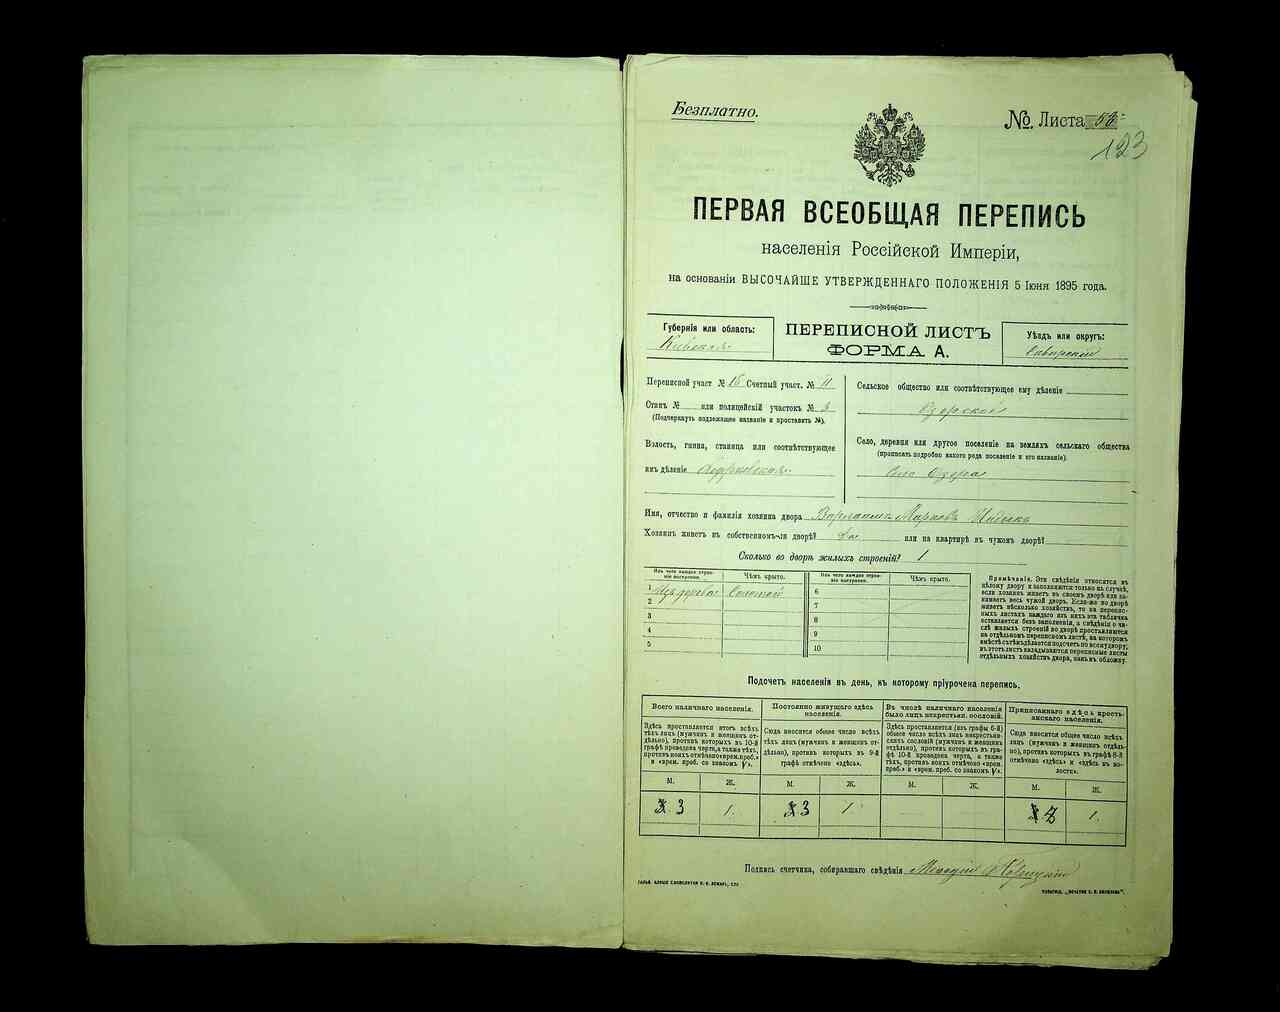 Безплатно.
№. Листа 53
123
ПЕРВАЯ ВСЕОБЩАЯ ПЕРЕПИСЬ
населенія Россійской Имперіи,
на основаніи ВЫСОЧАЙШЕ УТВЕРЖДЕННАГО ПОЛОЖЕНІЯ 5 Іюня 1895 года.
Губернія или область:
Кіевская
ПЕРЕПИСНОЙ ЛИСТЪ
ФОРМА А.
Уѣздъ или округъ:
Сквирскій
Переписной участ. № 15 Счетный участ. № 11
Станъ № или полицейскій участокъ № 3
(Подчеркнуть подлежащее названіе и проставить №).
Волость, гмина, станица или соотвѣтствующее
имъ дѣленіе
Сельское общество или соотвѣтствующее ему дѣленіе
Озерской
Село, деревня или другое поселеніе на земляхъ сельскаго общества
(прописать подробно какого рода поселеніе и его названіе).
Село Озера
Имя, отчество и фамилія хозяина двора Варлаамъ Марковъ
Хозяинъ живетъ въ собственномъ-ли дворѣ? Да или на квартирѣ въ чужомъ дворѣ?
Сколько во дворѣ жилыхъ строеній? 1
Изъ чего каждое строеніе выстроено. Чѣмъ крыто. Изъ чего каждое строеніе выстроено. Чѣмъ крыто.
1 Изъ дерева Соломой 6
2 7
3 8
4 9
5 10
Примѣчаніе. Эти свѣдѣнія относятся къ
цѣлому двору и заполняются только въ случаѣ,
если хозяинъ живетъ въ своемъ дворѣ или занимаетъ
весь чужой дворъ. Если-же во дворѣ
живетъ нѣсколько хозяйствъ, то на переписныхъ
листахъ каждаго изъ нихъ эта табличка
оставляется безъ заполненія, а свѣдѣнія о числѣ
жилыхъ строеній во дворѣ проставляются
на отдѣльномъ переписномъ листѣ, на которомъ
вмѣстѣ съ тѣмъ дѣлается подсчетъ по всему двору;
въ этотъ листъ вкладываются переписные листы
отдѣльныхъ хозяйствъ двора, какъ въ обложку.
Подсчетъ населенія въ день, къ которому пріурочена перепись.
Всего наличнаго населенія.
Здѣсь проставляется итогъ всѣхъ
тѣхъ лицъ (мужчинъ и женщинъ отдѣльно),
противъ которыхъ въ 10-й
графѣ проведена черта, а также тѣхъ,
противъ коихъ отмѣчено «врем. преб.»
и «врем. преб. со знакомъ V».
Постоянно живущаго здѣсь
населенія.
Сюда вносится общее число всѣхъ
тѣхъ лицъ (мужчинъ и женщинъ отдѣльно),
противъ которыхъ въ 9-й
графѣ отмѣчено «здѣсь».
Въ числѣ наличнаго населенія
было лицъ некрестьян. сословій.
Здѣсь проставляется (изъ графы 6-й)
общее число всѣхъ лицъ некрестьянскихъ
сословій (мужчинъ и женщинъ
отдѣльно), противъ которыхъ въ графѣ
10-й проведена черта, а также
тѣхъ, противъ коихъ отмѣчено «врем.
преб.» и «врем. преб. со знакомъ V».
Приписаннаго здѣсь крестьянскаго
населенія.
Сюда вносится общее число всѣхъ
лицъ (мужчинъ и женщинъ отдѣльно),
противъ которыхъ въ графѣ 8-й
отмѣчено «здѣсь» и «здѣсь въ волости».
М. Ж. М. Ж. М. Ж. М. Ж.
3 1. 3 1 2 1.
Подпись счетчика, собиравшаго свѣдѣнія